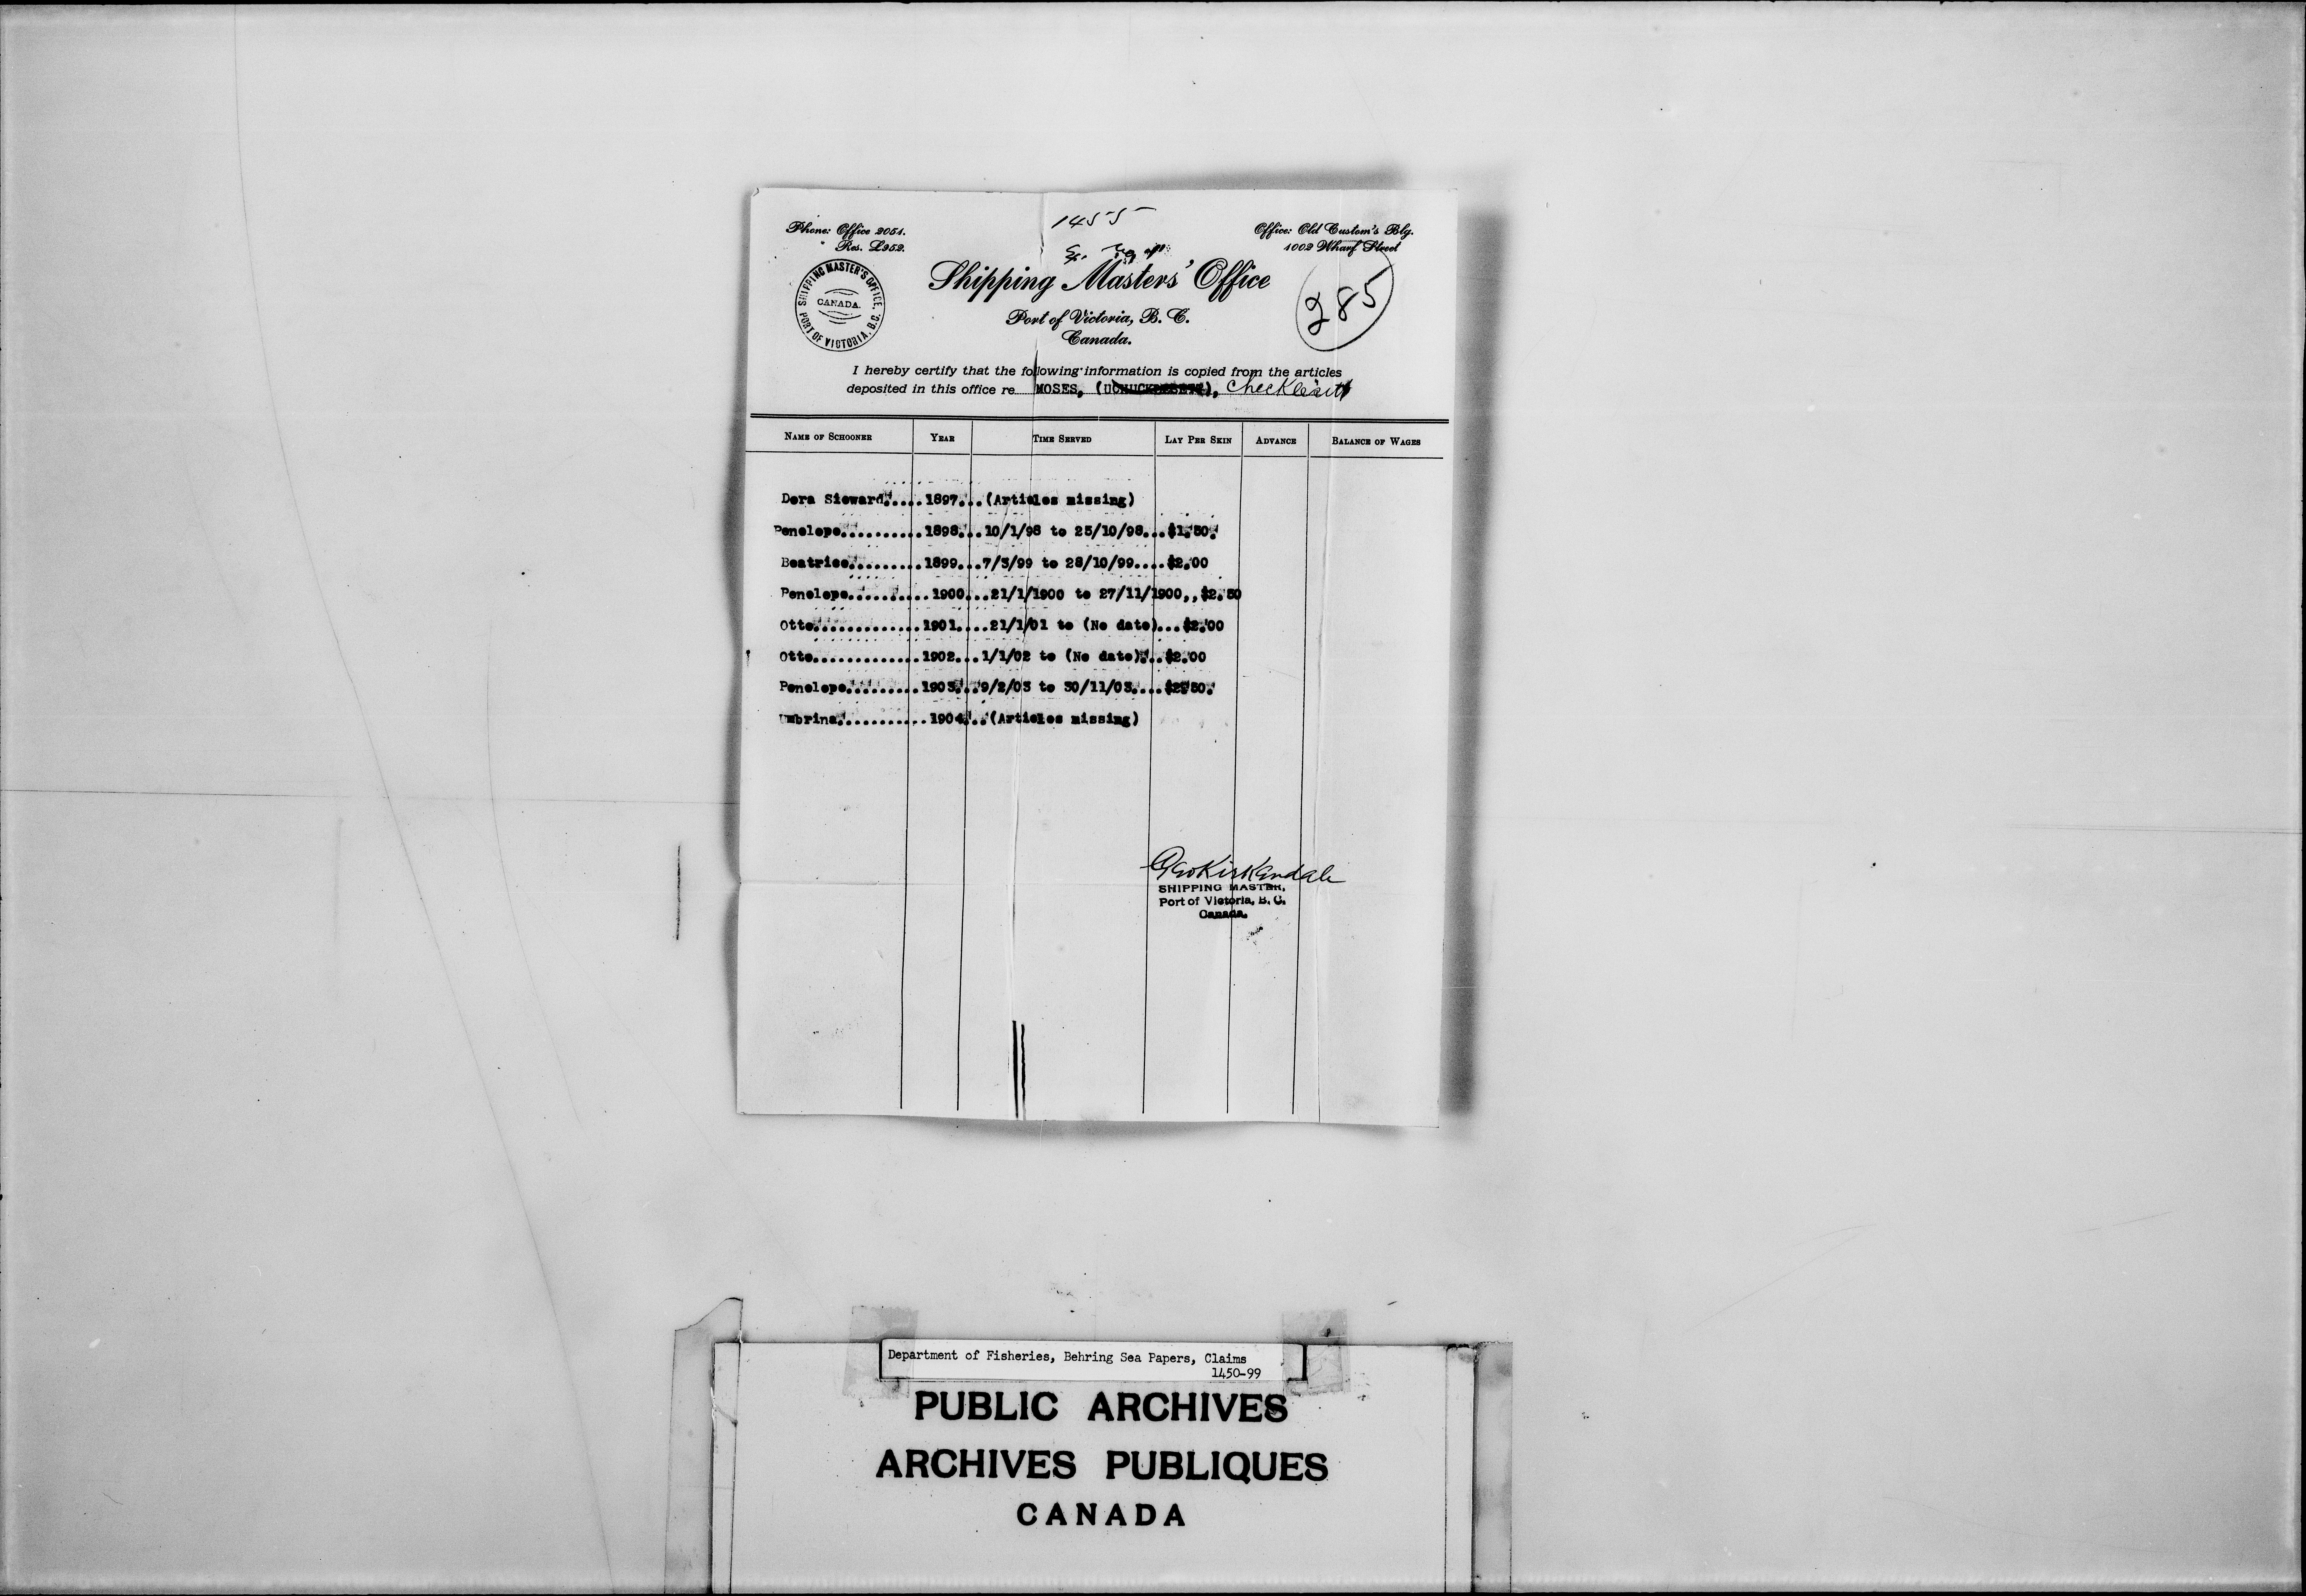 1455
Phone: Office 2051.
" Res. L952.
Office: Old Custom's Blg.
1002 Wharf Street
SHIPPING MASTER'S OFFICE.
CANADA.
PORT OF VICTORIA, B.C.
Shipping Masters' Office
285
Port of Victoria, B. C.
Canada.
I hereby certify that the following information is copied from the articles
deposited in this office re MOSES,
NAME OF SCHOONER YEAR TIME SERVED LAY PER SKIN ADVANCE BALANCE OF WAGES
Dora Sieward.....1897...(Articles missing)
Penelope..........1898...10/1/98 to 25/10/98...$1.50.
Beatrice.........1899...7/5/99 to 28/10/99....$2.00
Penelope..........1900...21/1/1900 to 27/11/1900,,$2.50
Otto.............1901....21/1/01 to (No date)...$2.00
Otto.............1902...1/1/02 to (No date)...$2.00
Penelope.........1903...9/2/03 to 30/11/03....$2.50.
Umbrina..........1904...(Articles missing)
Geo Kirkendale
SHIPPING MASTER,
Port of Victoria, B. C.
Canada.
Department of Fisheries, Behring Sea Papers, Claims
1450-99
PUBLIC ARCHIVES
ARCHIVES PUBLIQUES
CANADA